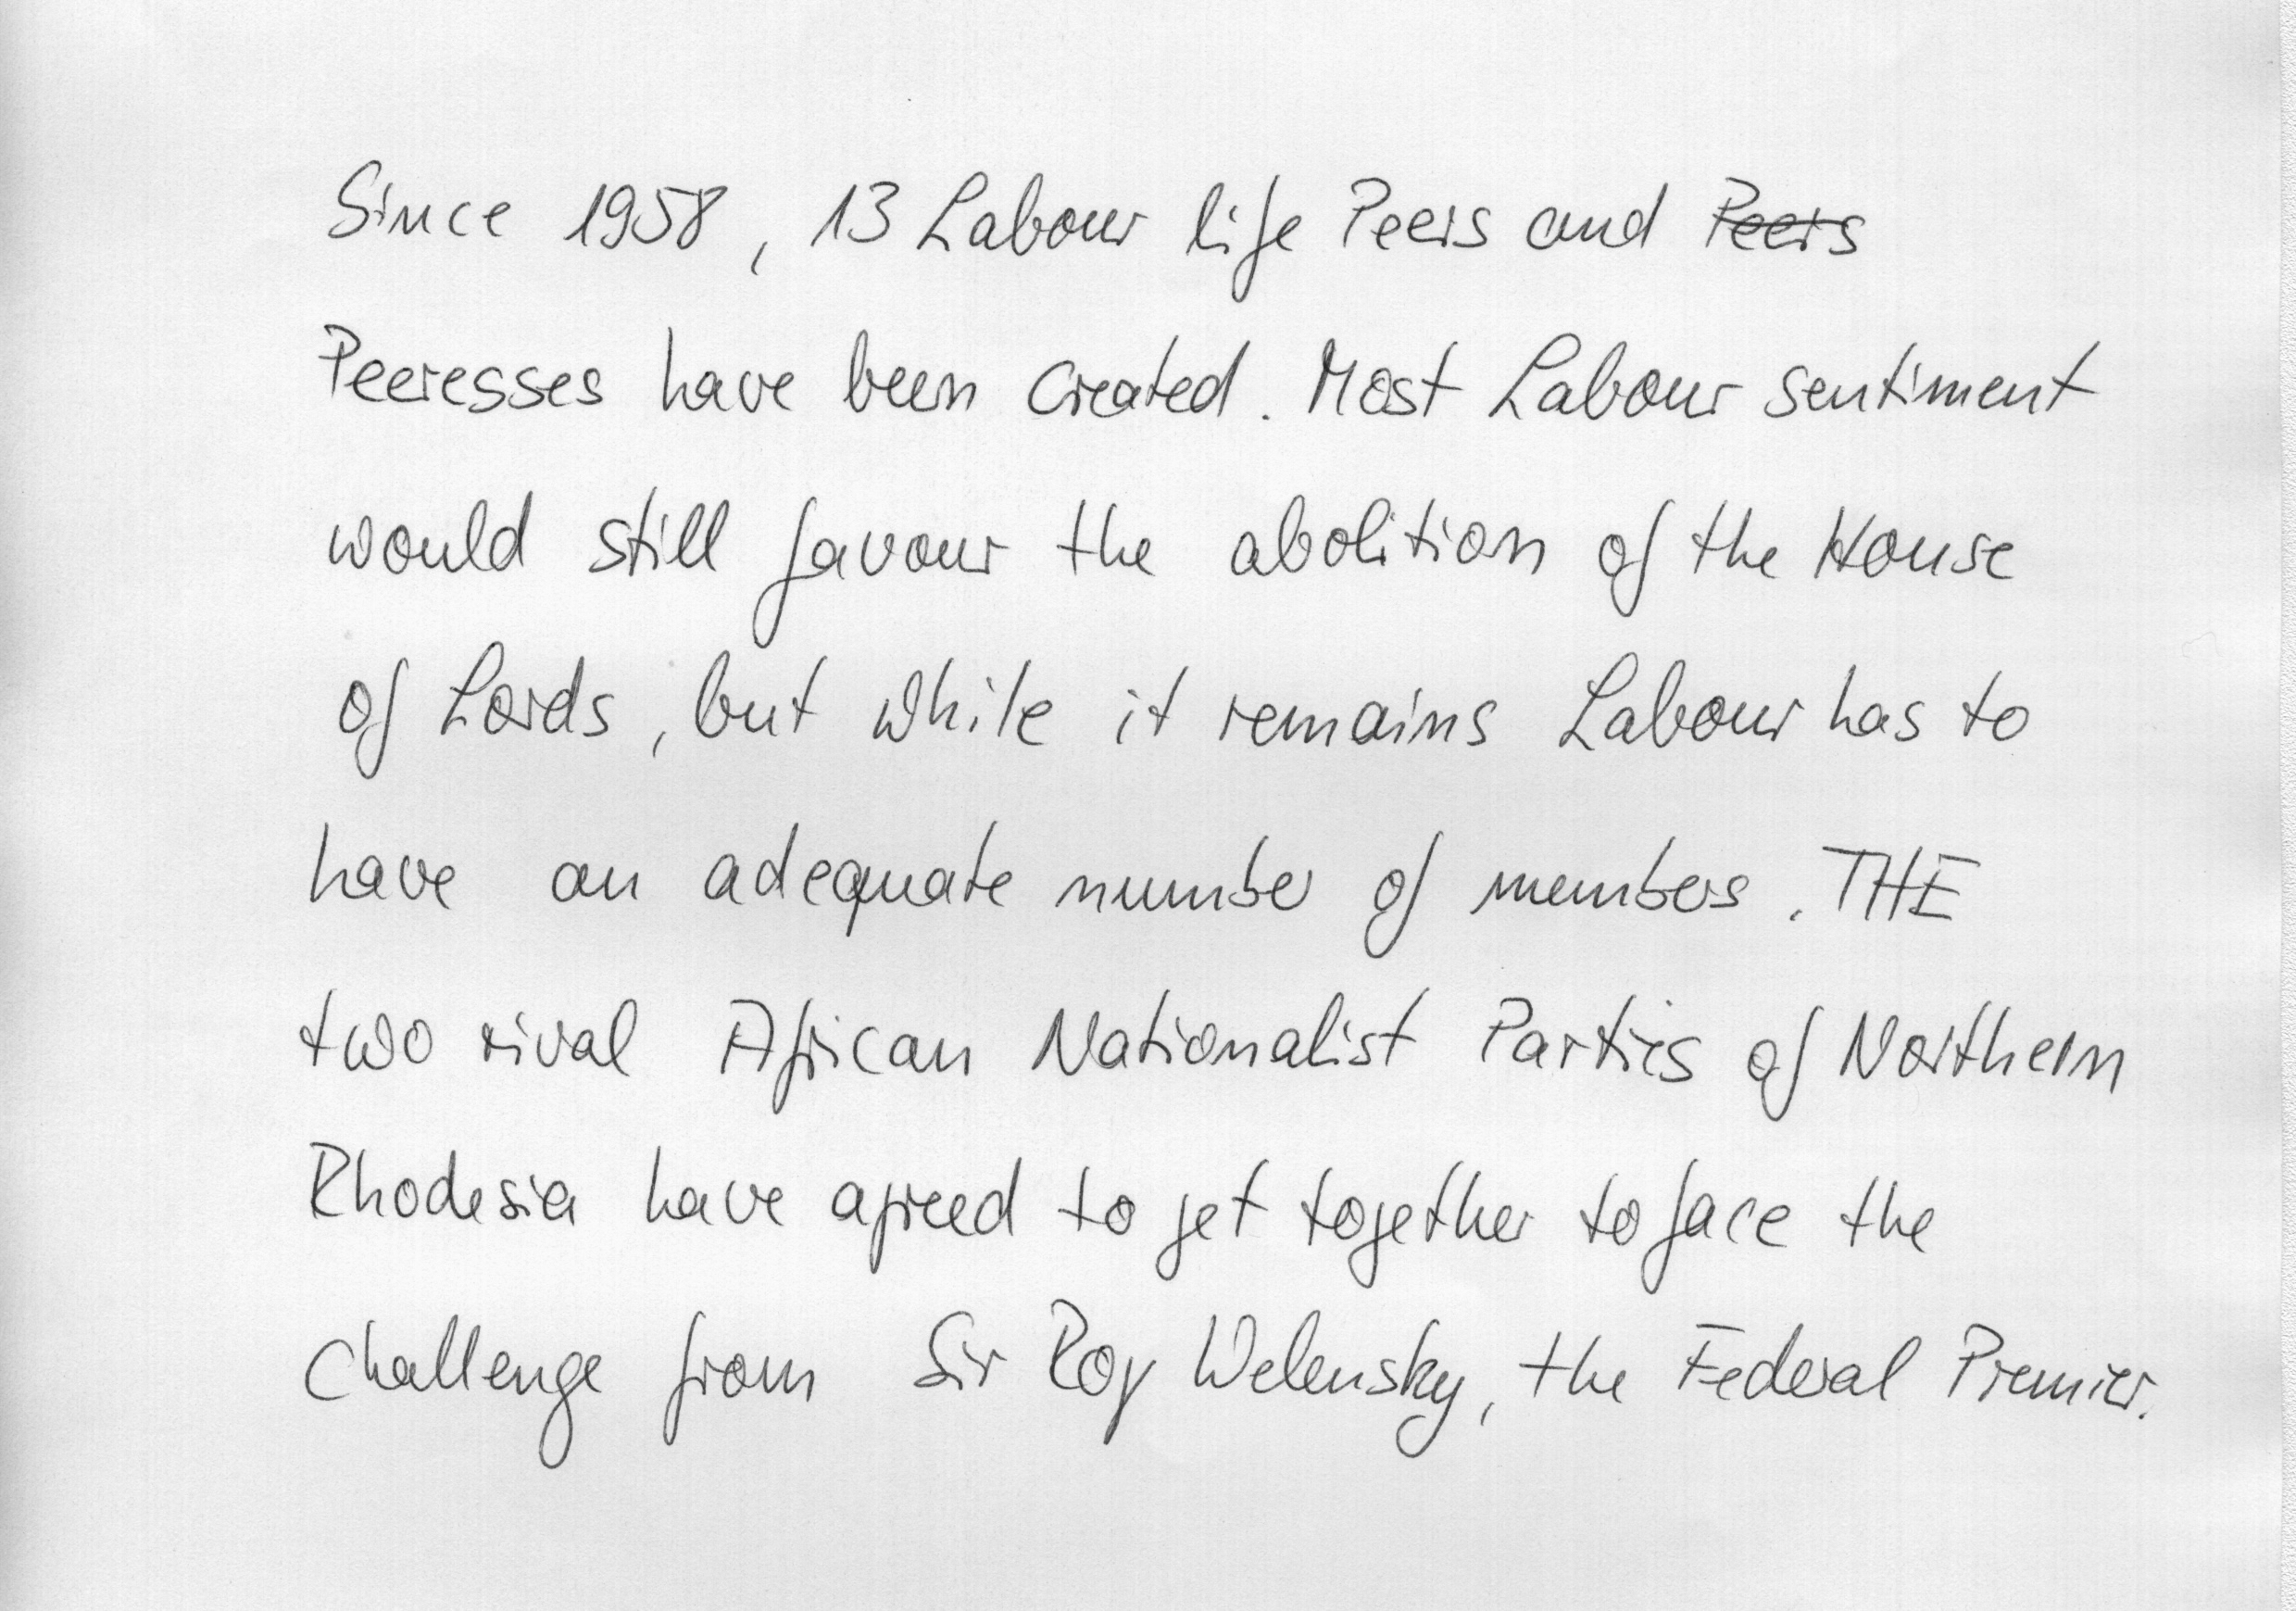 Since 1958, 13 Labour life Peers and Peers
Peeresses have been created. Most Labour sentiment
would still favour the abolition of the House
of Lords, but while it remains Labour has to
have an adequate number of members. THE
two rival African Nationalist Parties of Northern
Rhodesia have agreed to get together to face the
challenge from Sir Roy Welensky, the Federal Premier.